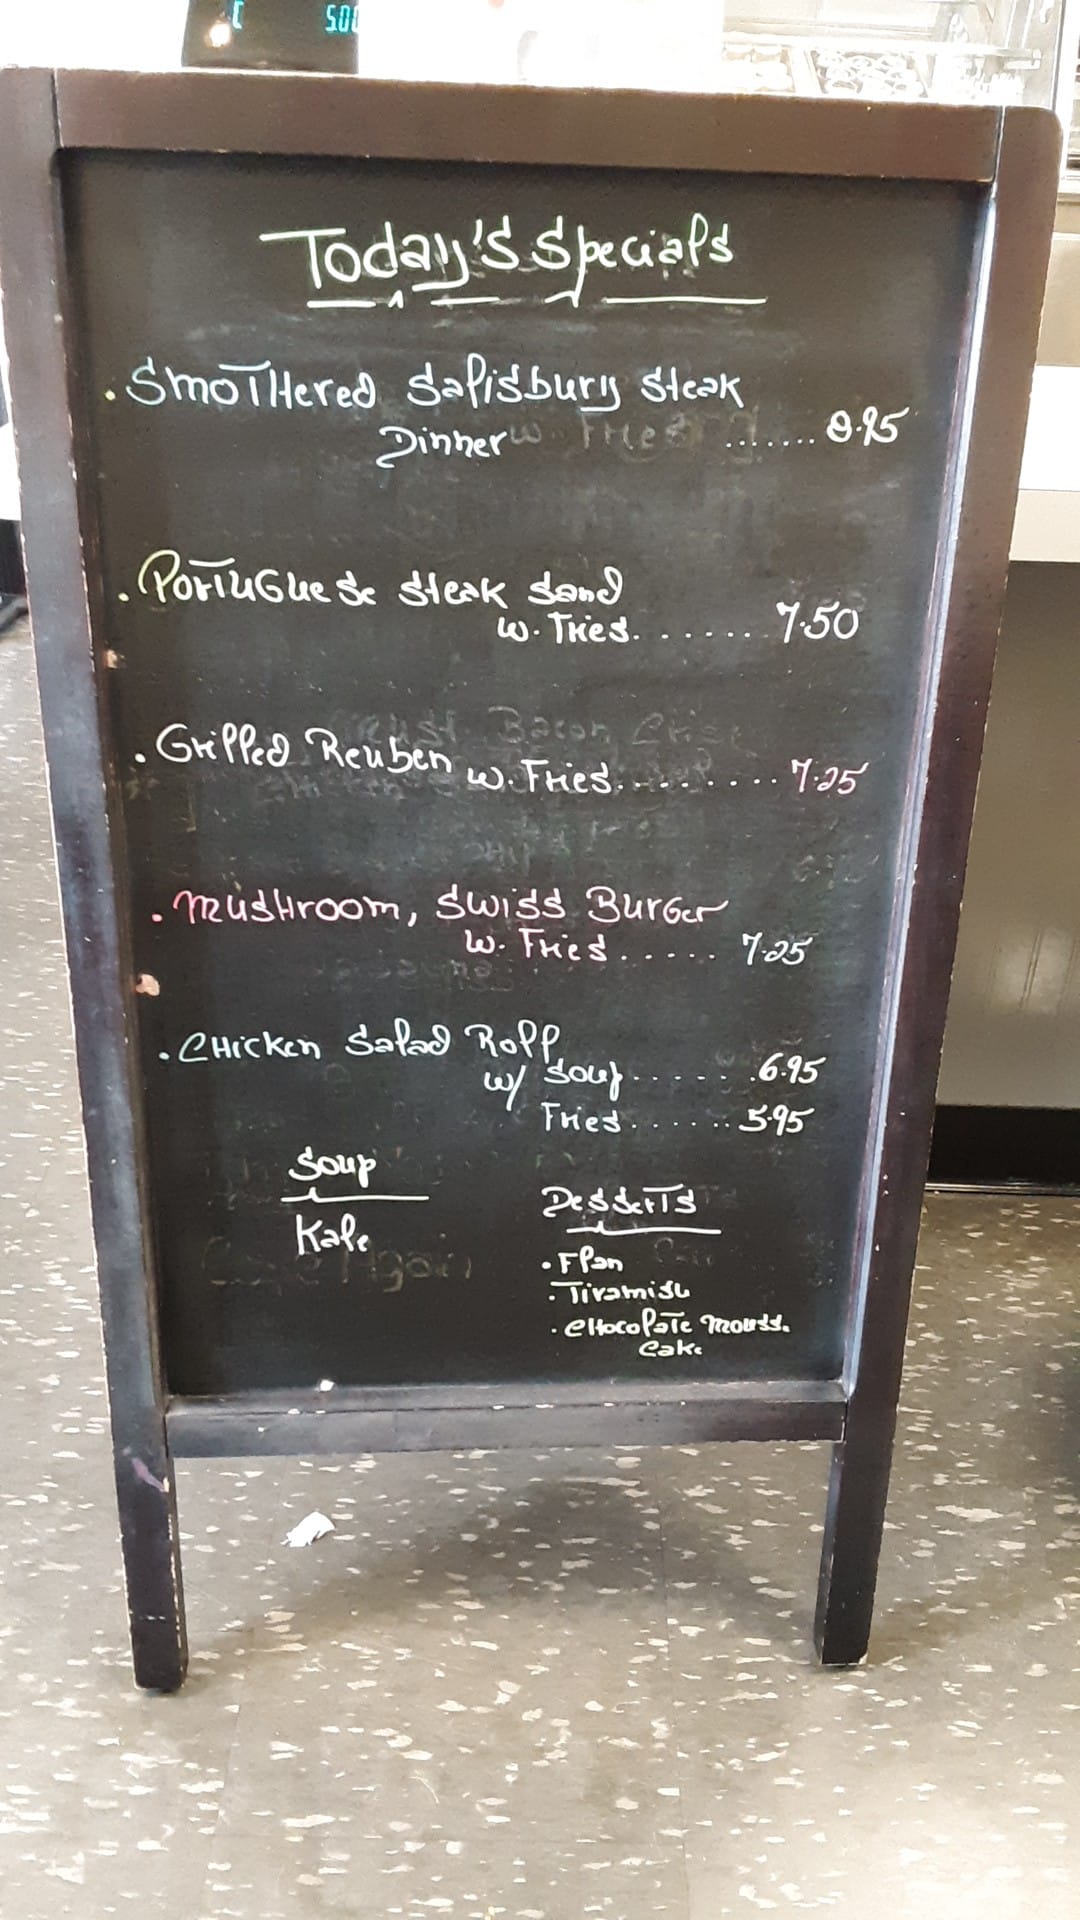 5.00
Today's Specials
. Smothered Salisbury Steak
Dinner ........ 8.95
. Portuguese Steak Sand
w. Fries. ....... 7.50
. Grilled Reuben w. Fries......... 7.25
. Mushroom, Swiss Burger
w. Fries..... 7.25
. Chicken Salad Roll
w/ Soup...... .6.95
Fries....... 5.95
Soup
Kale
Desserts
. Flan
. Tiramisu
. Chocolate Mouss.
Cake